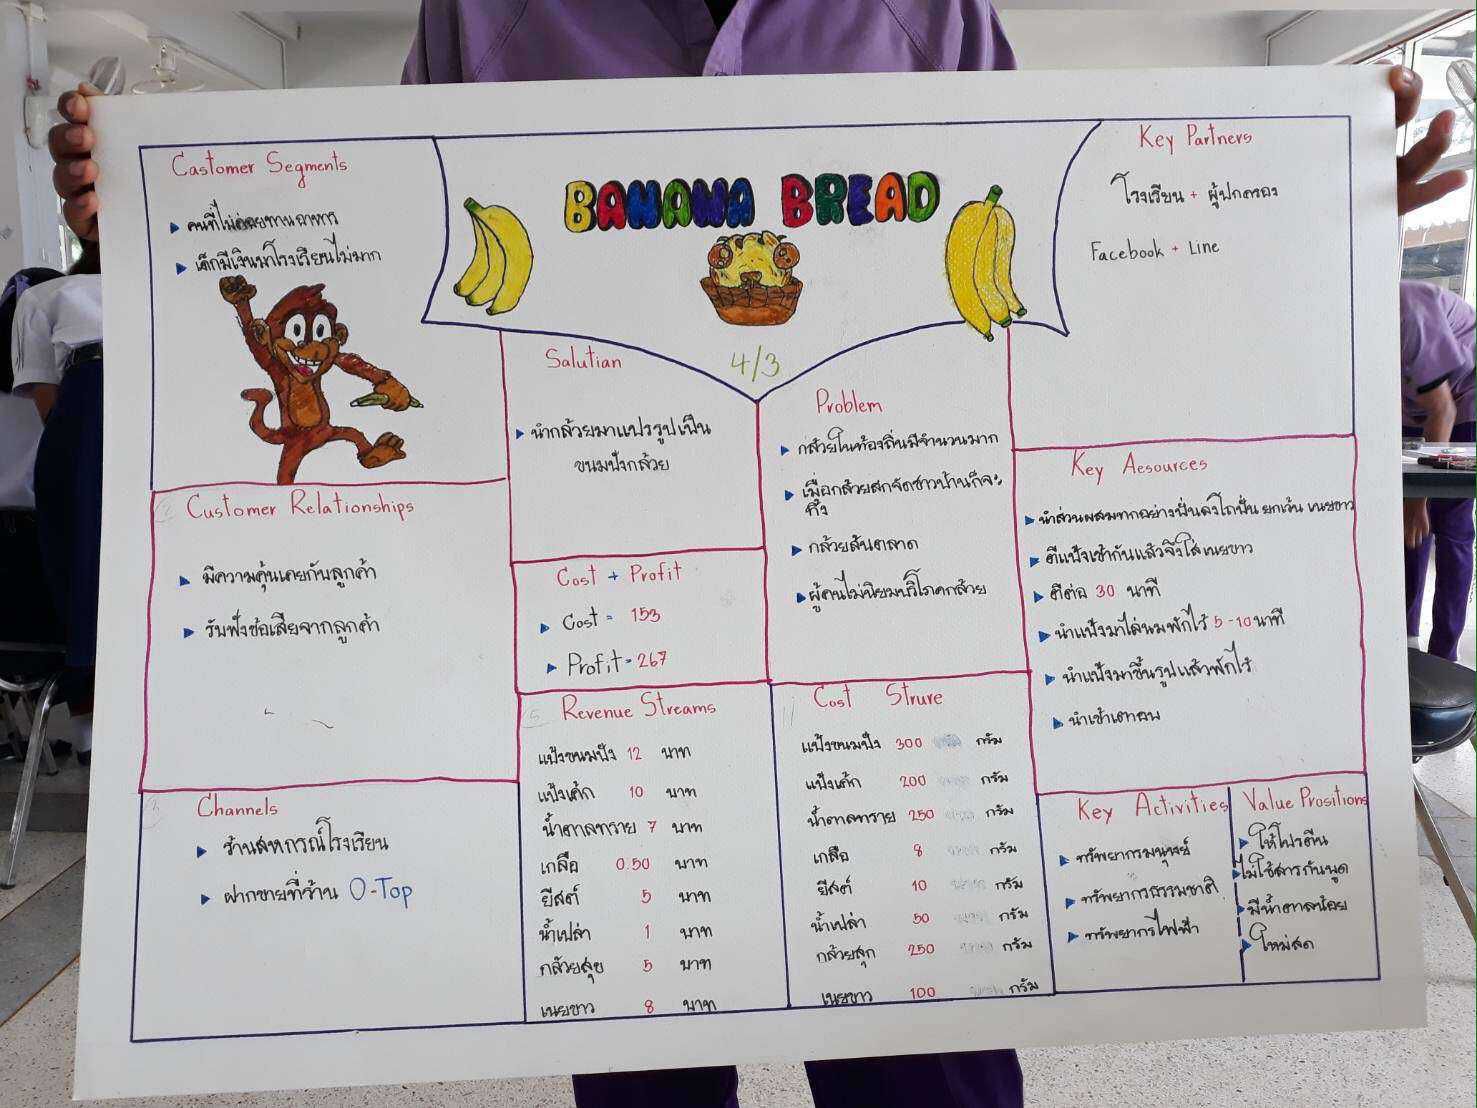 Castomer Segments
คนที่ไม่ค่อยทานอาหาร
เด็กมีเงินมาโรงเรียนไม่มาก
BANANA BREAD
4/3
Key Partners
โรงเรียน + ผู้ปกครอง
Facebook + Line
Salutian
นำกล้วยมาแปรรูปเป็น
ขนมปังกล้วย
Problem
กล้วยในท้องถิ่นมีจำนวนมาก
เมื่อกล้วยสุกจัดชาวบ้านก็จะ
ทิ้ง
กล้วยล้นตลาด
ผู้คนไม่นิยมบริโภคกล้วย
Key Aesources
นำส่วนผสมทุกอย่างปั่นลงโถปั่น ยกเว้น เนยขาว
ตีแป้งเข้ากันแล้วจึงใส่เนยขาว
ตีต่อ 30 นาที
นำแป้งมาใส่นมพักไว้ 5-10 นาที
นำแป้งมาขึ้นรูปแล้วพักไว้
นำเข้าเตาอบ
Customer Relationships
มีความคุ้นเคยกันลูกค้า
รับฟังข้อเสียจากลูกค้า
Cost + Profit
Cost = 153
Profit = 267
Channels
ร้านสหกรณ์โรงเรียน
ฝากขายที่ร้าน O-Top
Revenue Streams
แป้งขนมปัง 12 บาท
แป้งเค้ก 10 บาท
น้ำตาลทราย 7 บาท
เกลือ 0.50 บาท
ยีสต์ 5 บาท
น้ำเปล่า 1 บาท
กล้วยสุข 5 บาท
เนยขาว 8 บาท
Cost Strure
แป้งขนมปัง 300 กรัม
แป้งเค้ก 200 กรัม
น้ำตาลทราย 250 กรัม
เกลือ 8 กรัม
ยีสต์ 10 กรัม
น้ำเปล่า 50 กรัม
กล้วยสุก 250 กรัม
เนยขาว 100 กรัม
Key Activities
ทรัพยากรมนุษย์
ทรัพยากรธรรมชาติ
ทรัพยากรไฟฟ้า
Value Prositions
ให้โปรตีน
ไม่ใช้สารกันบูด
มีน้ำตาลน้อย
ใหม่สด